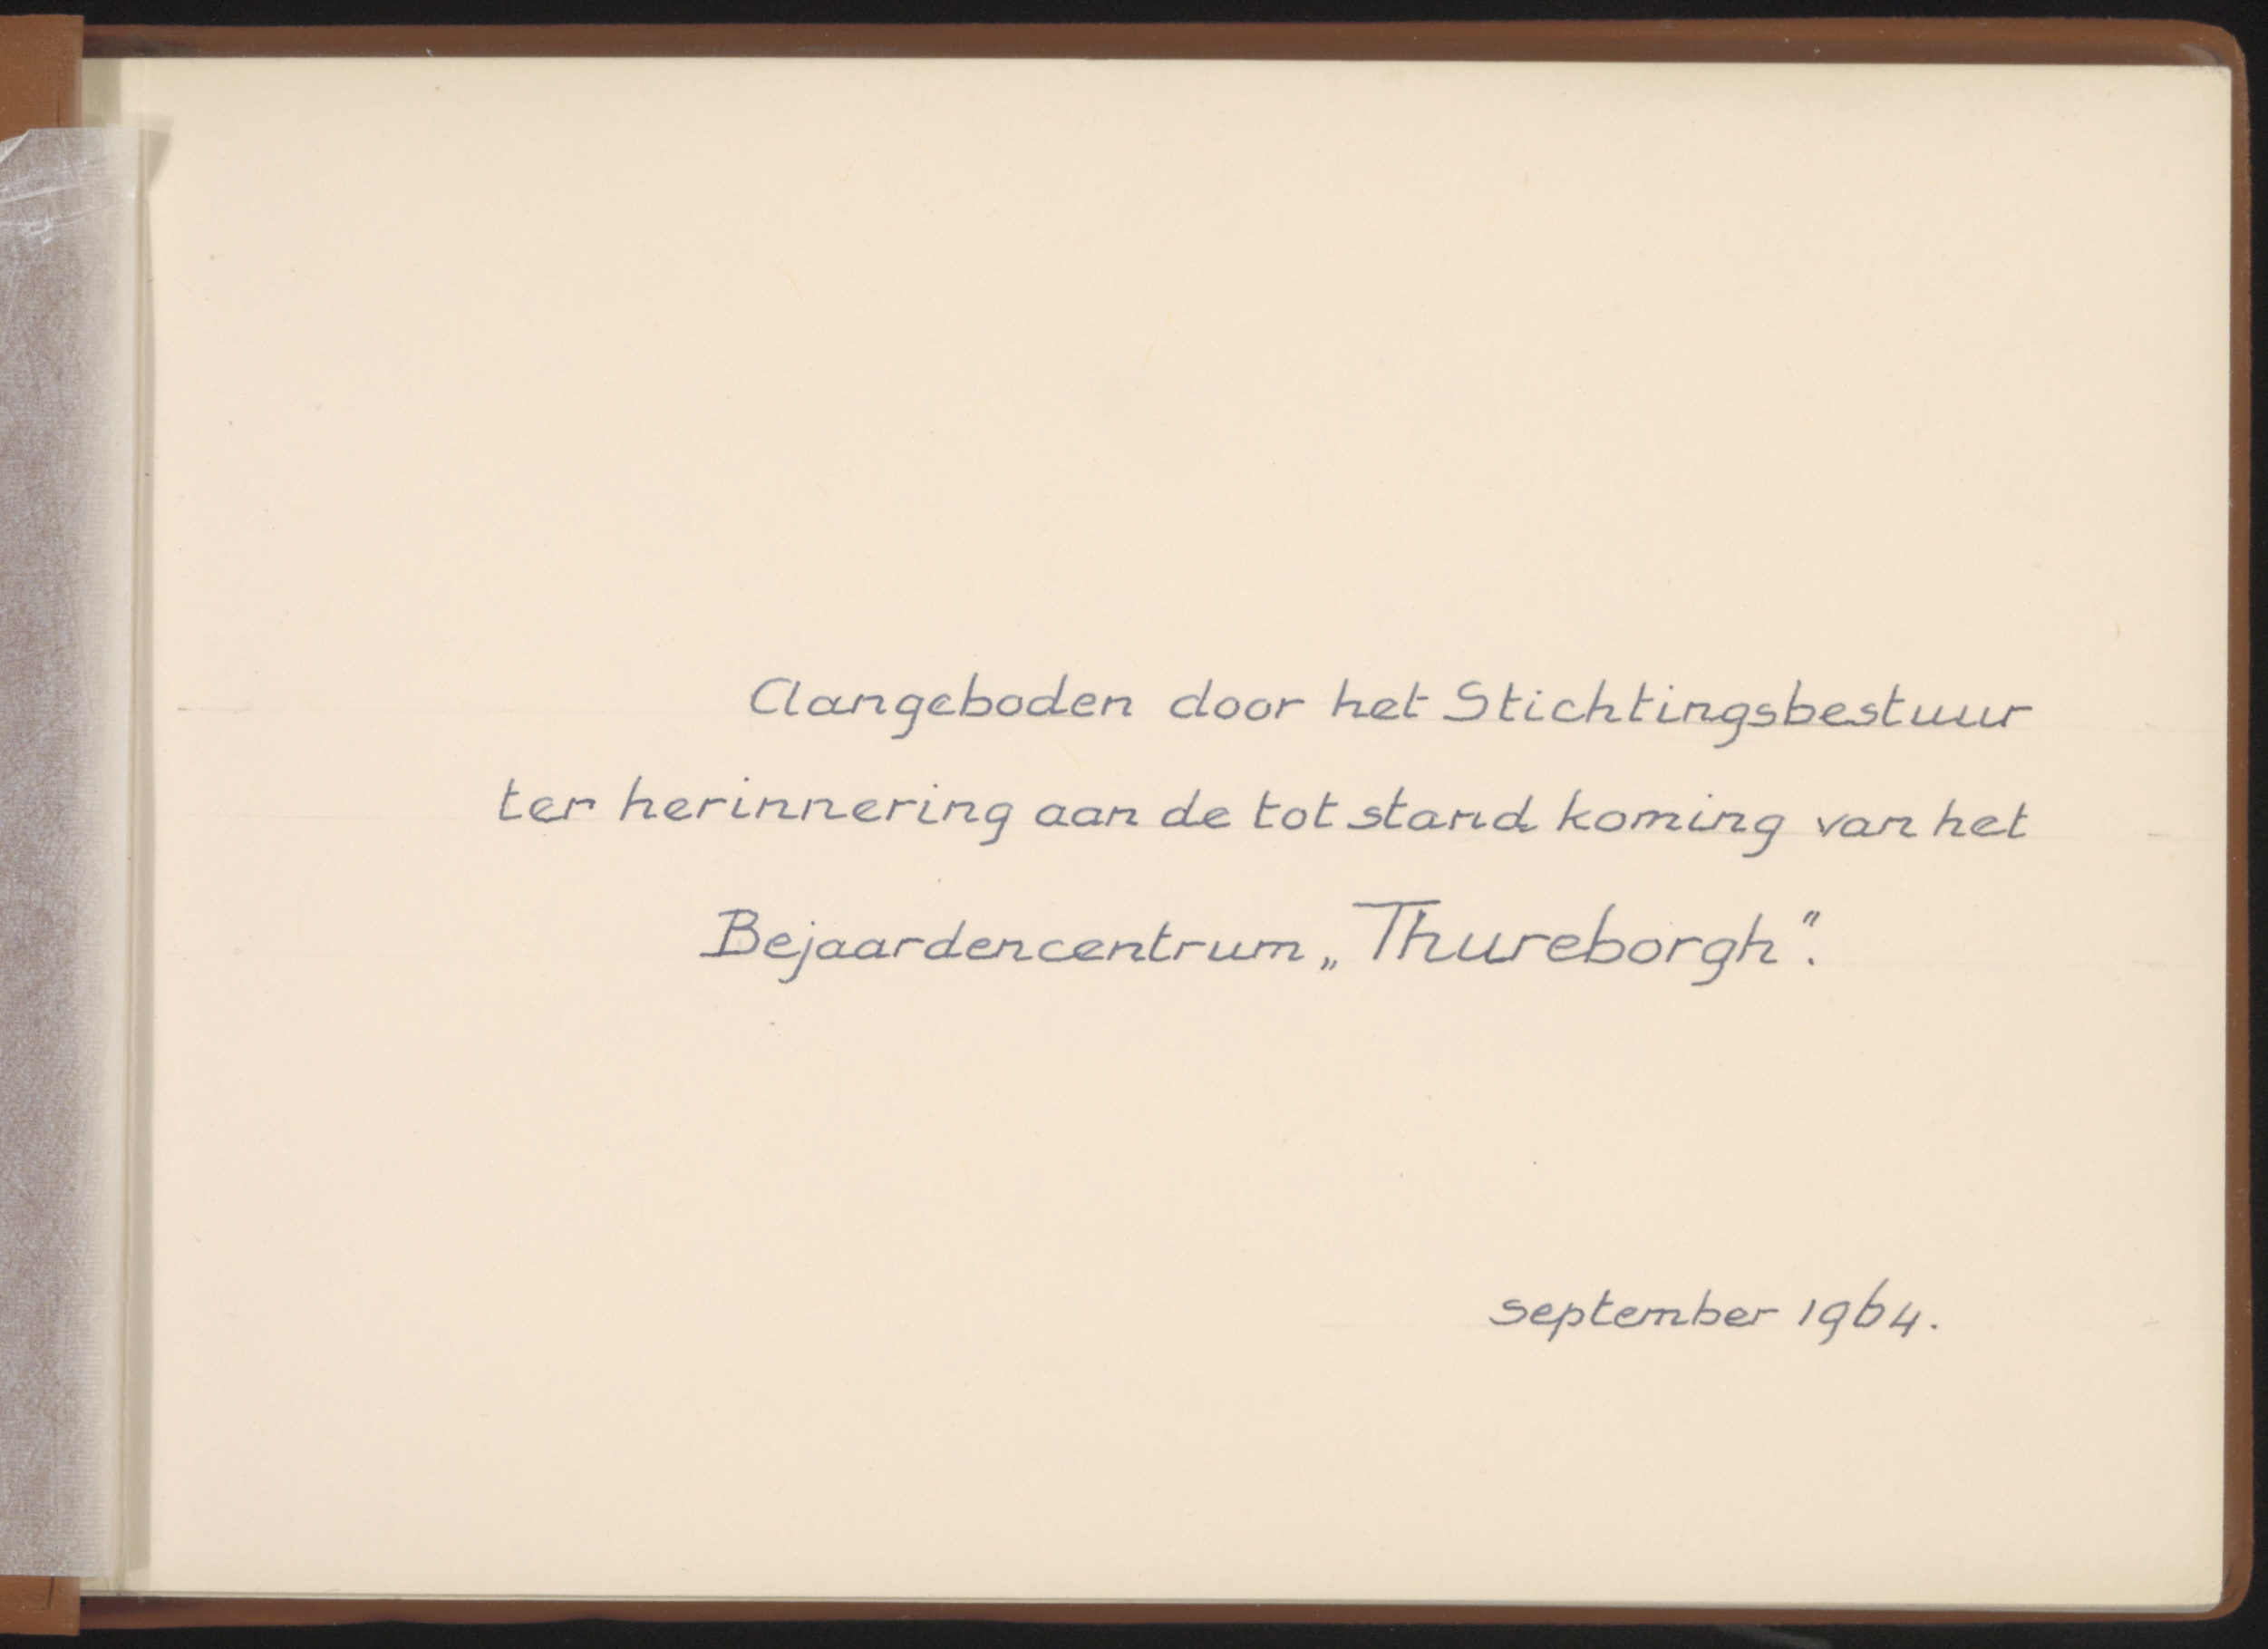 Aangeboden door het Stichtingsbestuur
ter herinnering aan de tot stand koming van het
Bejaardencentrum „Thureborgh”.
september 1964.